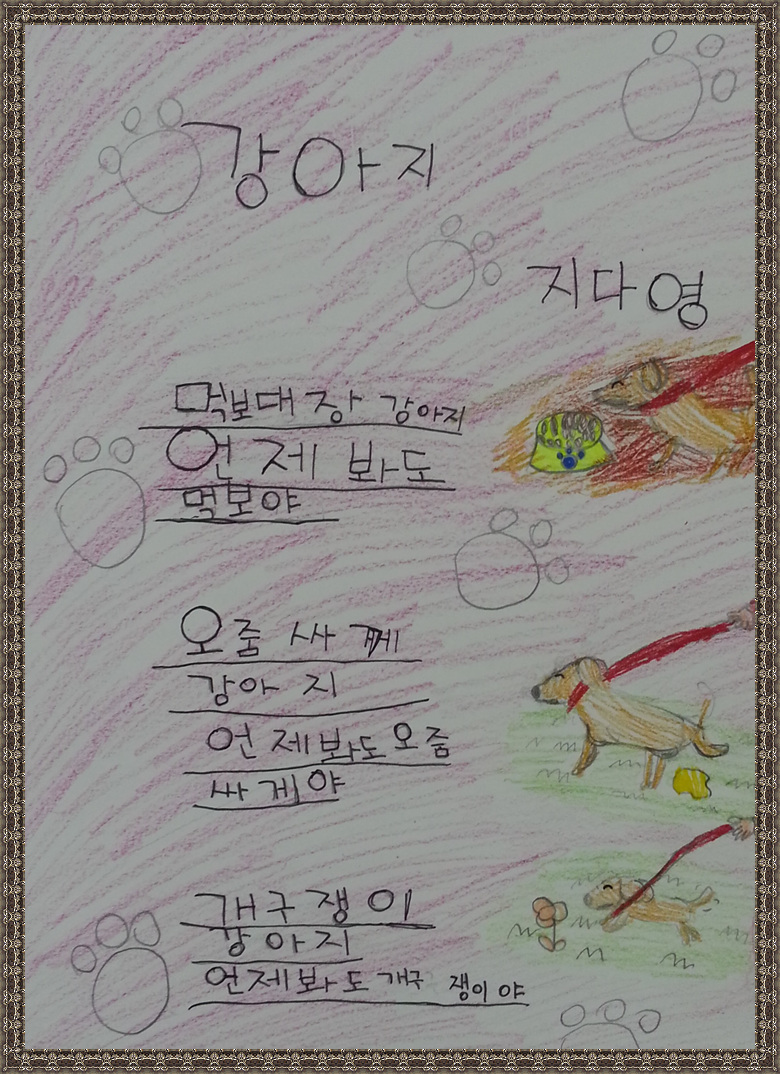 강아지
지다영
먹보대장 강아지
언제 봐도
먹보야
오줌 싸께
강아지
언제봐도 오줌
싸게야
개구쟁이
강아지
언제봐도 개구쟁이야